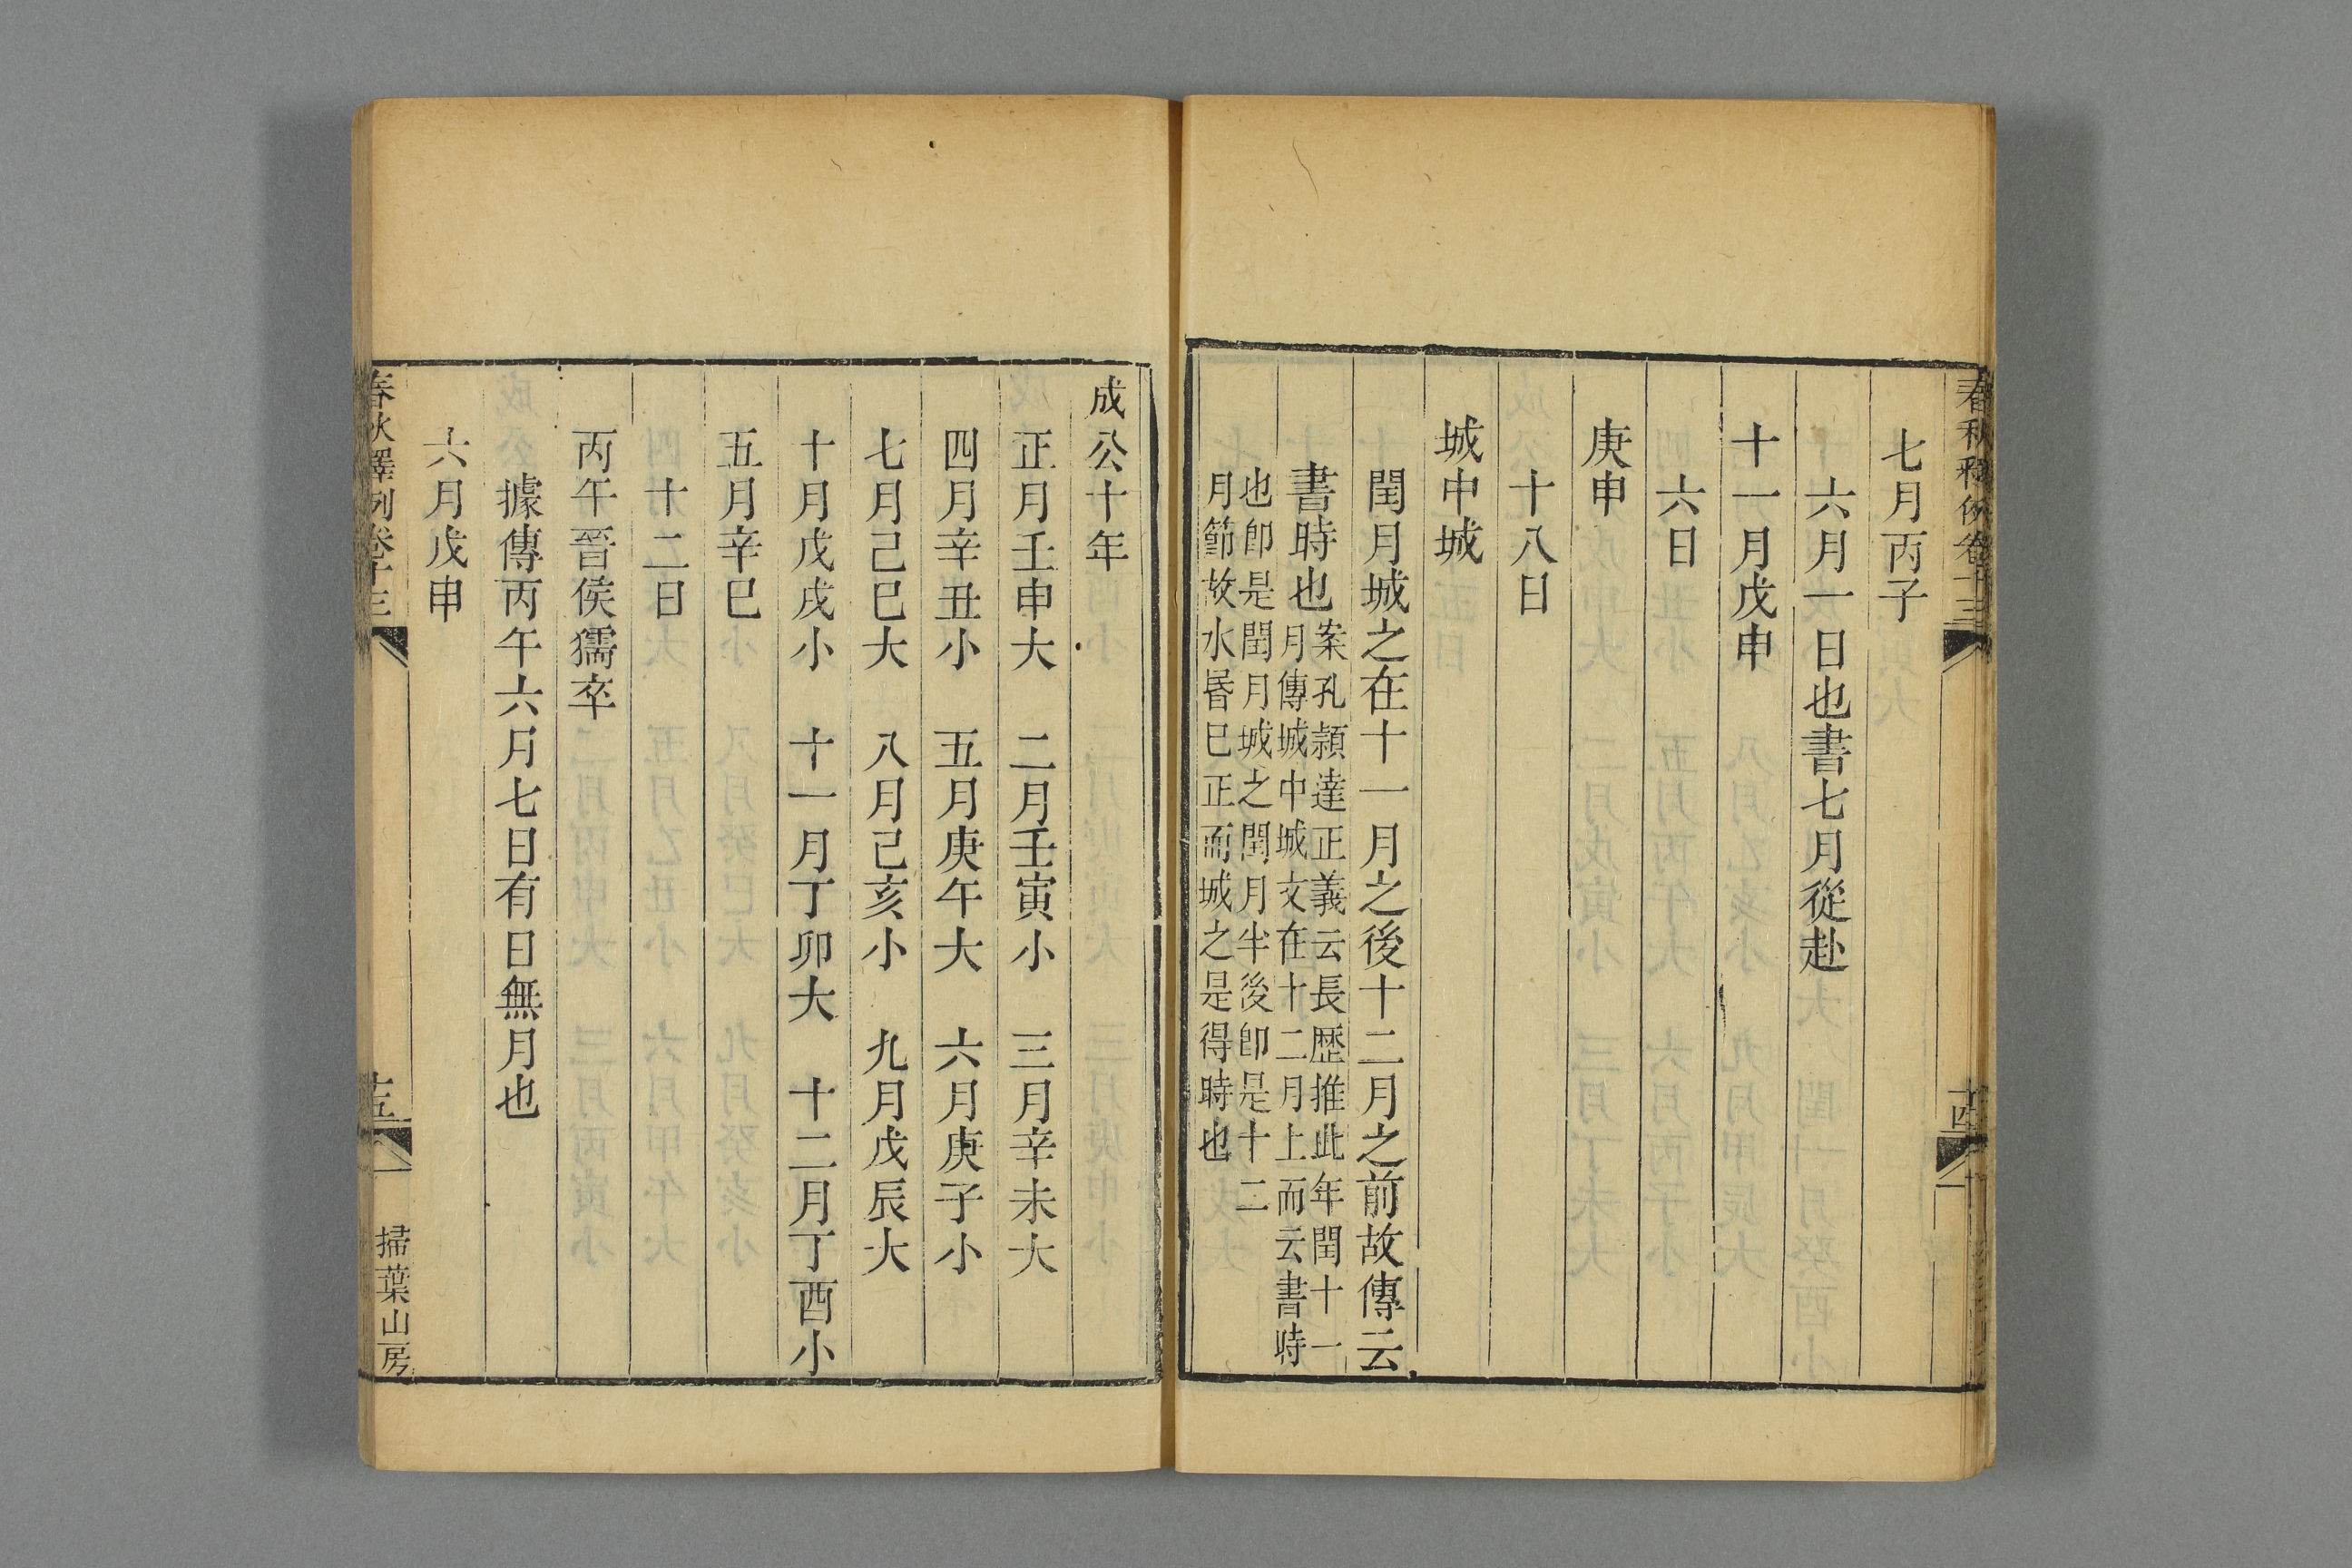 春秋釋例卷十三
十四
七月丙子
六月一日也書七月從赴
十一月戊申
六日
庚申
十八日
城中城
閏月城之在十一月之後十二月之前故傳云
書時也案孔頴達正義云長歷推此年閏十一
月傳城中城文在十二月上而云書時
也卽是閏月城之閏月半後卽是十二
月節故水昬巳正而城之是得時也
成公十年
正月壬申大　二月壬寅小　三月辛未大
四月辛丑小　五月庚午大　六月庚子小
七月己巳大　八月己亥小　九月戊辰大
十月戊戌小　十一月丁卯大　十二月丁酉小
五月辛巳
十二日
丙午晉侯獳卒
據傳丙午六月七日有日無月也
六月戊申
春秋釋例卷十三
十五
掃葉山房